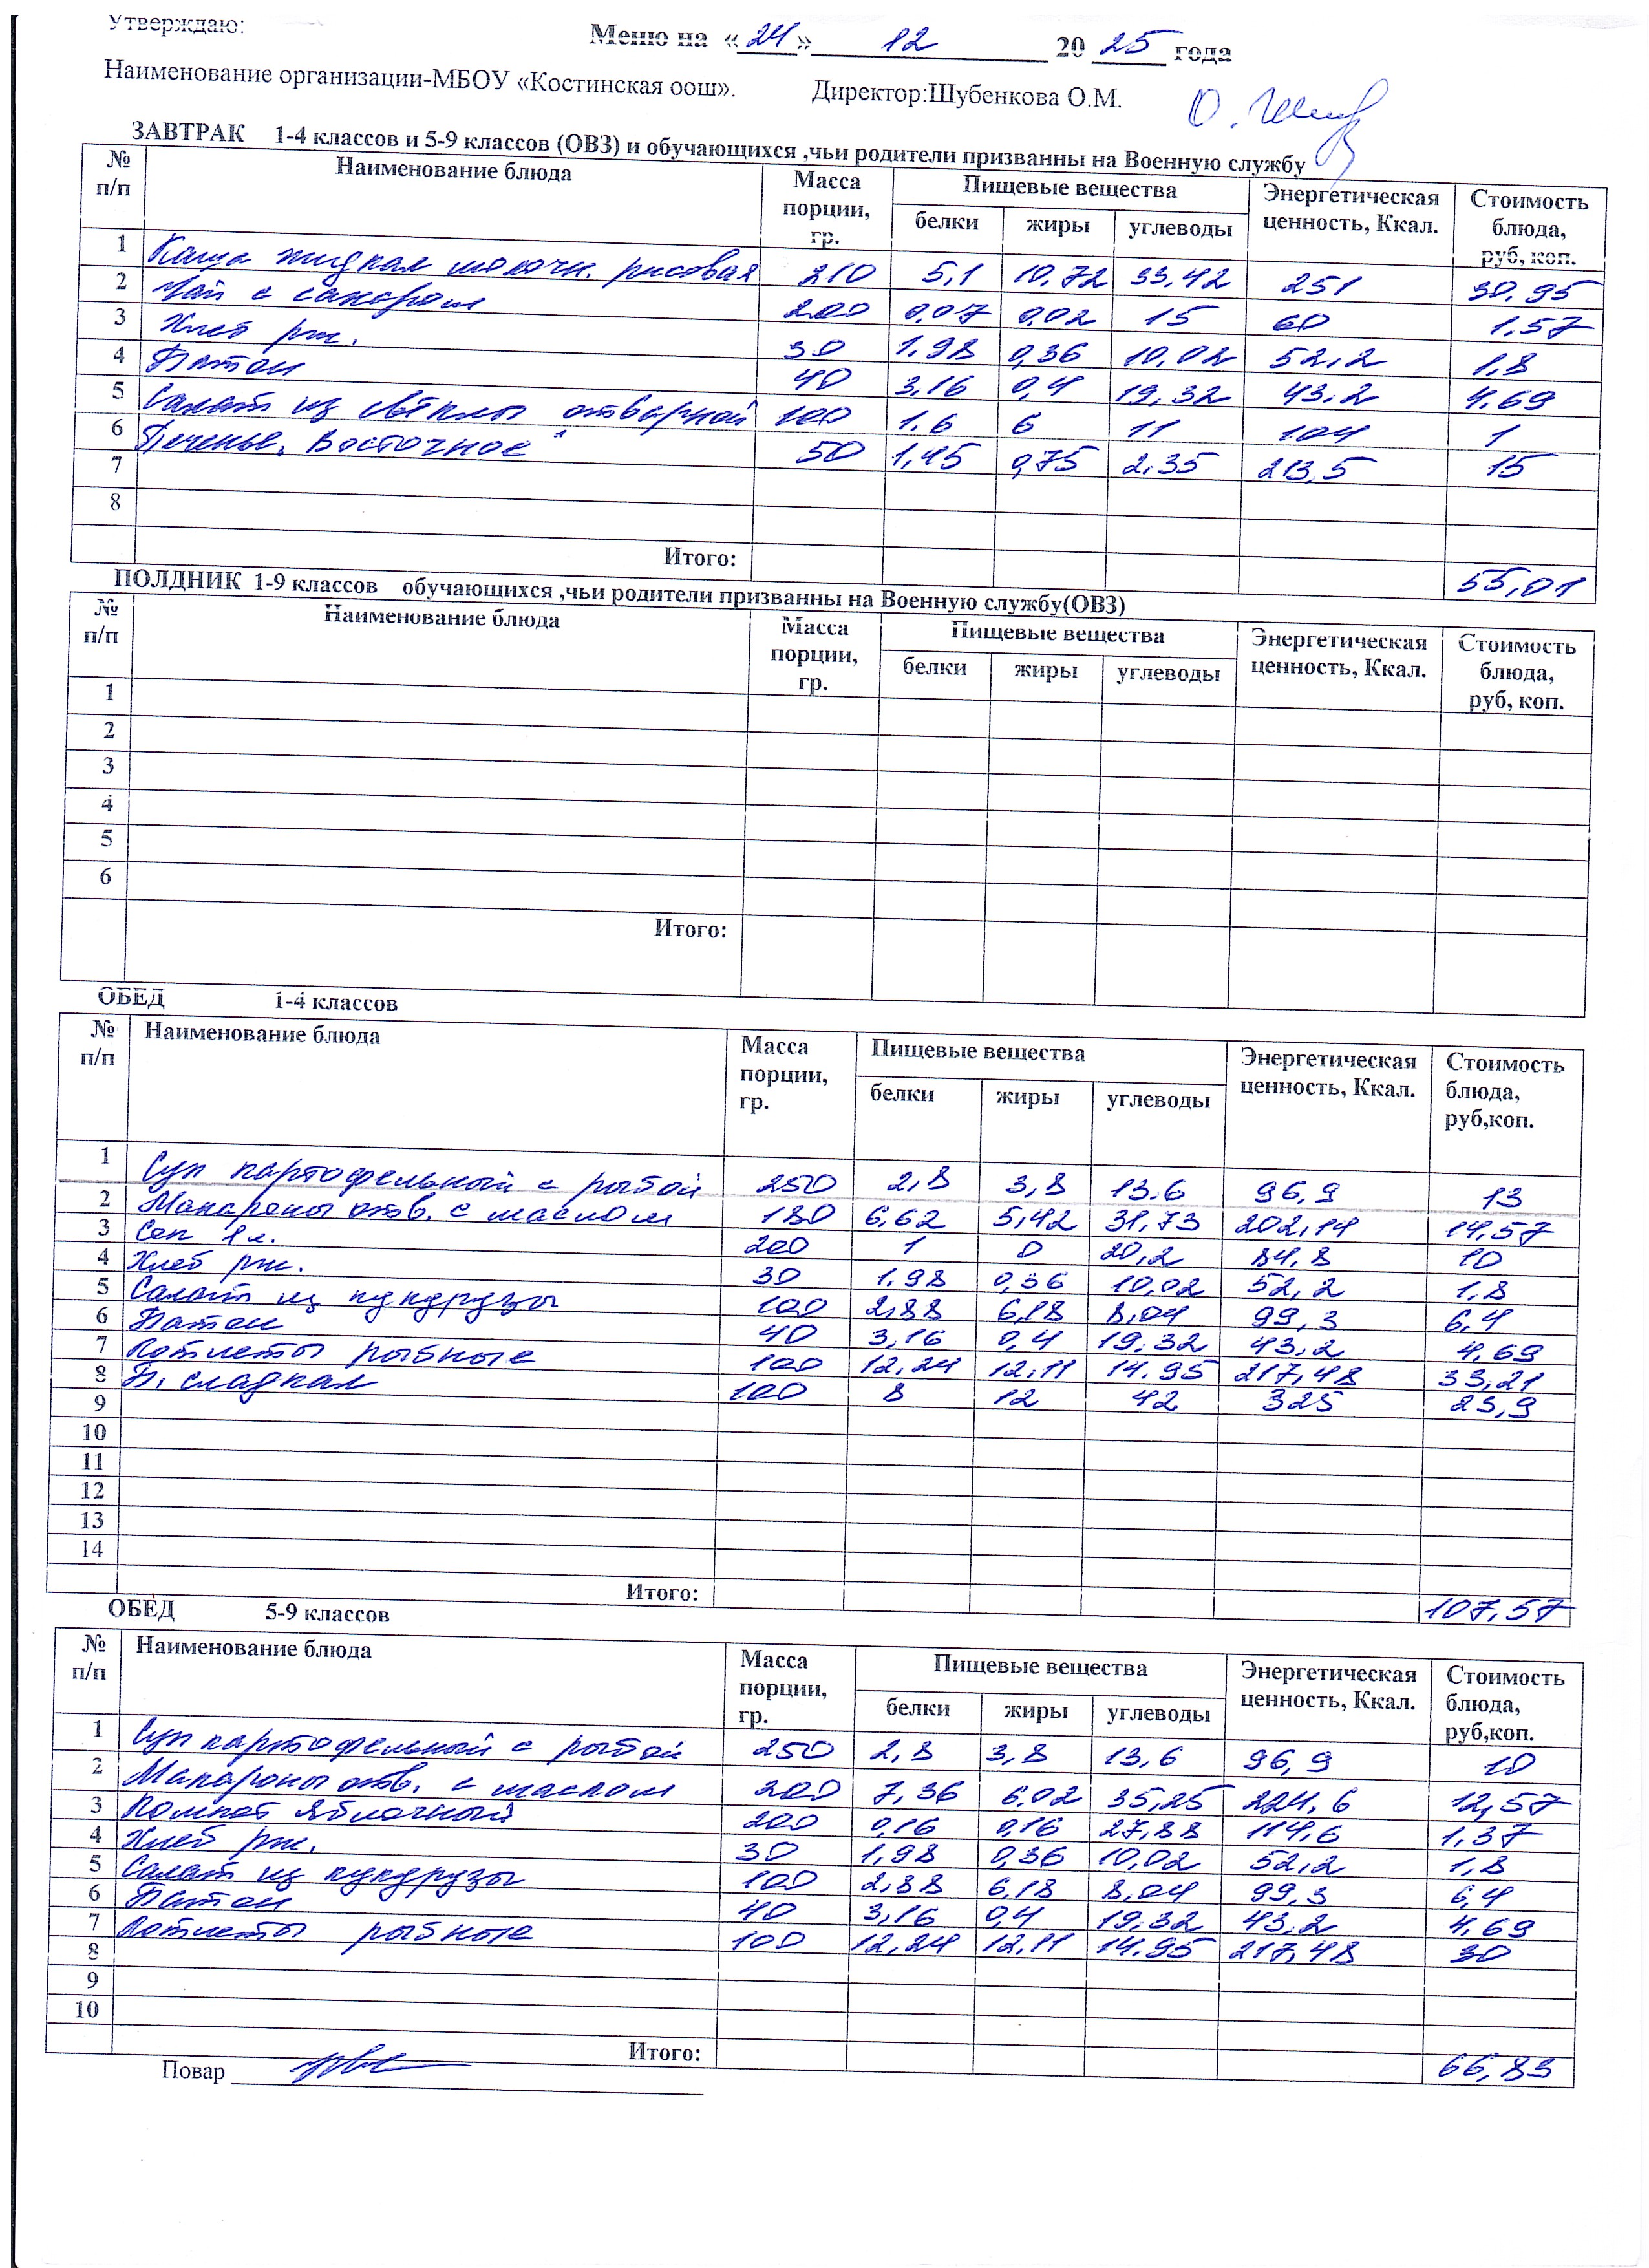 Утверждаю:
Меню на «24» 12 2025 года
Наименование организации-МБОУ «Костинская оош». Директор:Шубенкова О.М.
ЗАВТРАК 1-4 классов и 5-9 классов (ОВЗ) и обучающихся ,чьи родители призванны на Военную службу
№ п/п Наименование блюда Масса порции, гр. Пищевые вещества Энергетическая ценность, Ккал. Стоимость блюда, руб, коп.
белки жиры углеводы
1 Каша жидкая молочн. рисовая 210 5,1 10,72 33,42 251 30,95
2 Чай с сахаром 200 0,07 0,02 15 60 1,57
3 Хлеб рж. 30 1,98 0,36 10,02 52,2 1,8
4 Батон 40 3,16 0,4 19,32 43,2 4,69
5 Салат из свёклы отварной 100 1,6 6 11 104 1
6 Печенье „Восточное" 50 1,45 0,75 2,35 213,5 15
7
8
Итого: 55,01
ПОЛДНИК 1-9 классов обучающихся ,чьи родители призванны на Военную службу(ОВЗ)
№ п/п Наименование блюда Масса порции, гр. Пищевые вещества Энергетическая ценность, Ккал. Стоимость блюда, руб, коп.
белки жиры углеводы
1
2
3
4
5
6
Итого:
ОБЕД 1-4 классов
№ п/п Наименование блюда Масса порции, гр. Пищевые вещества Энергетическая ценность, Ккал. Стоимость блюда, руб,коп.
белки жиры углеводы
1 Суп картофельный с рыбой 250 2,8 3,8 13.6 96,9 13
2 Макароны отв. с маслом 180 6,62 5,42 31,73 202,14 14,57
3 Сок 1л. 200 1 0 20,2 84,8 10
4 Хлеб рж. 30 1,98 0,36 10,02 52,2 1,8
5 Салат из кукурузы 100 2,88 6,18 8,04 99,3 6,4
6 Батон 40 3,16 0,4 19,32 43,2 4,69
7 Котлеты рыбные 100 12,24 12,11 14.95 217,48 33,21
8 Б. сладкая 100 8 12 42 325 23,9
9
10
11
12
13
14
Итого: 107,57
ОБЕД 5-9 классов
№ п/п Наименование блюда Масса порции, гр. Пищевые вещества Энергетическая ценность, Ккал. Стоимость блюда, руб,коп.
белки жиры углеводы
1 Суп картофельный с рыбой 250 2,8 3,8 13,6 96,9 10
2 Макароны отв. с маслом 200 7,36 6,02 35,25 224,6 12,57
3 Компот яблочный 200 0,16 0,16 27,88 114,6 1,37
4 Хлеб рж. 30 1,98 0,36 10,02 52,2 1,8
5 Салат из кукурузы 100 2,88 6,18 8,04 99,3 6,4
6 Батон 40 3,16 0,4 19,32 43,2 4,69
7 Котлеты рыбные 100 12,24 12,11 14.95 217,48 30
8
9
10
Итого: 66,83
Повар